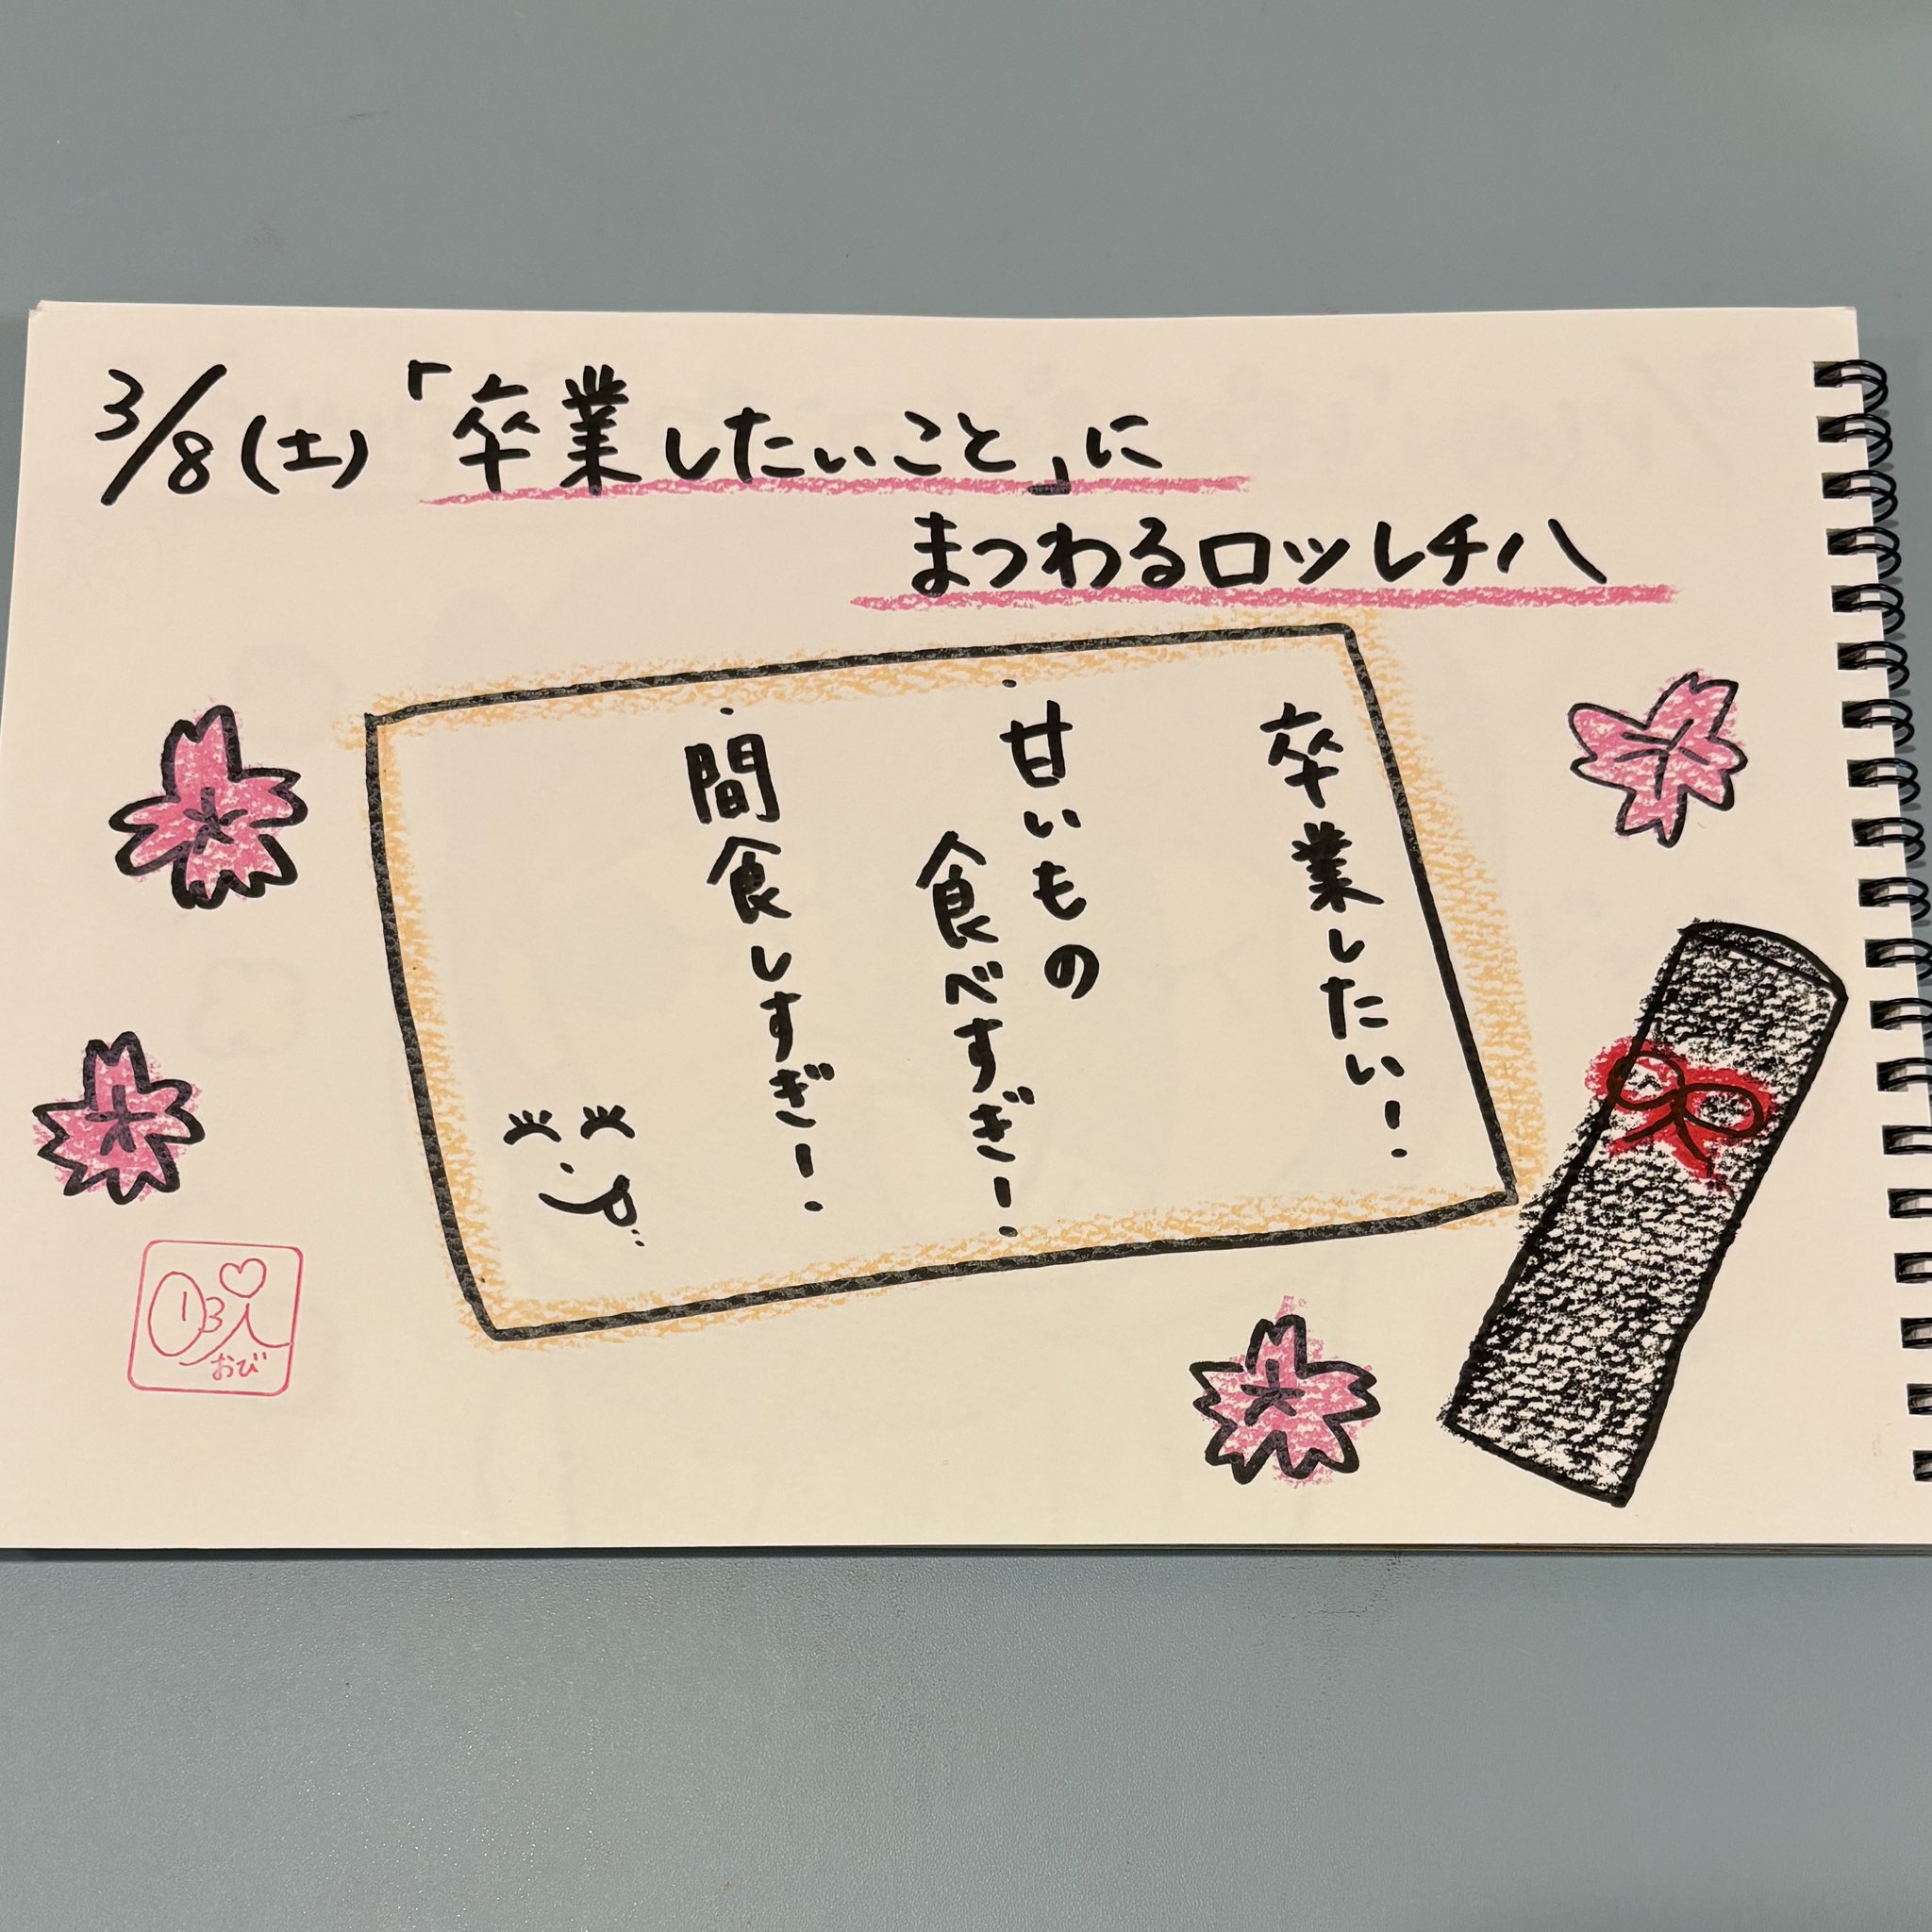 3/8(土)「卒業したいこと」に
まつわるロッレチハ
卒業したい!
・甘いもの
食べすぎ!
・間食しすぎ!
おび